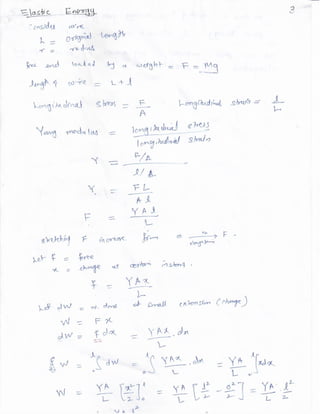 Elastic Energy
3
Consider wire
L = Original Length
r = radius
free end loaded by a weight = F = Mg
length of wire = L + l
Longitudinal stress = F/A
Longitudinal strain = l/L
Young modulus = longitudinal stress / longitudinal strain
Y = F/A / l/L
Y = FL / A l
F = Y A l / L
stretching F increase from = F
Let f = force
x = change at certain
f = Y A x / L
Let dW = at small extension (change)
W = F x
dW = f dx = Y A x / L . dx
W = ∫₀ˡ dW = ∫₀ˡ Y A x / L . dx = Y A / L ∫₀ˡ x dx
W = YA / L [x²/2]₀ˡ = YA / L [l²/2 - 0²/2] = YA / L . l²/2